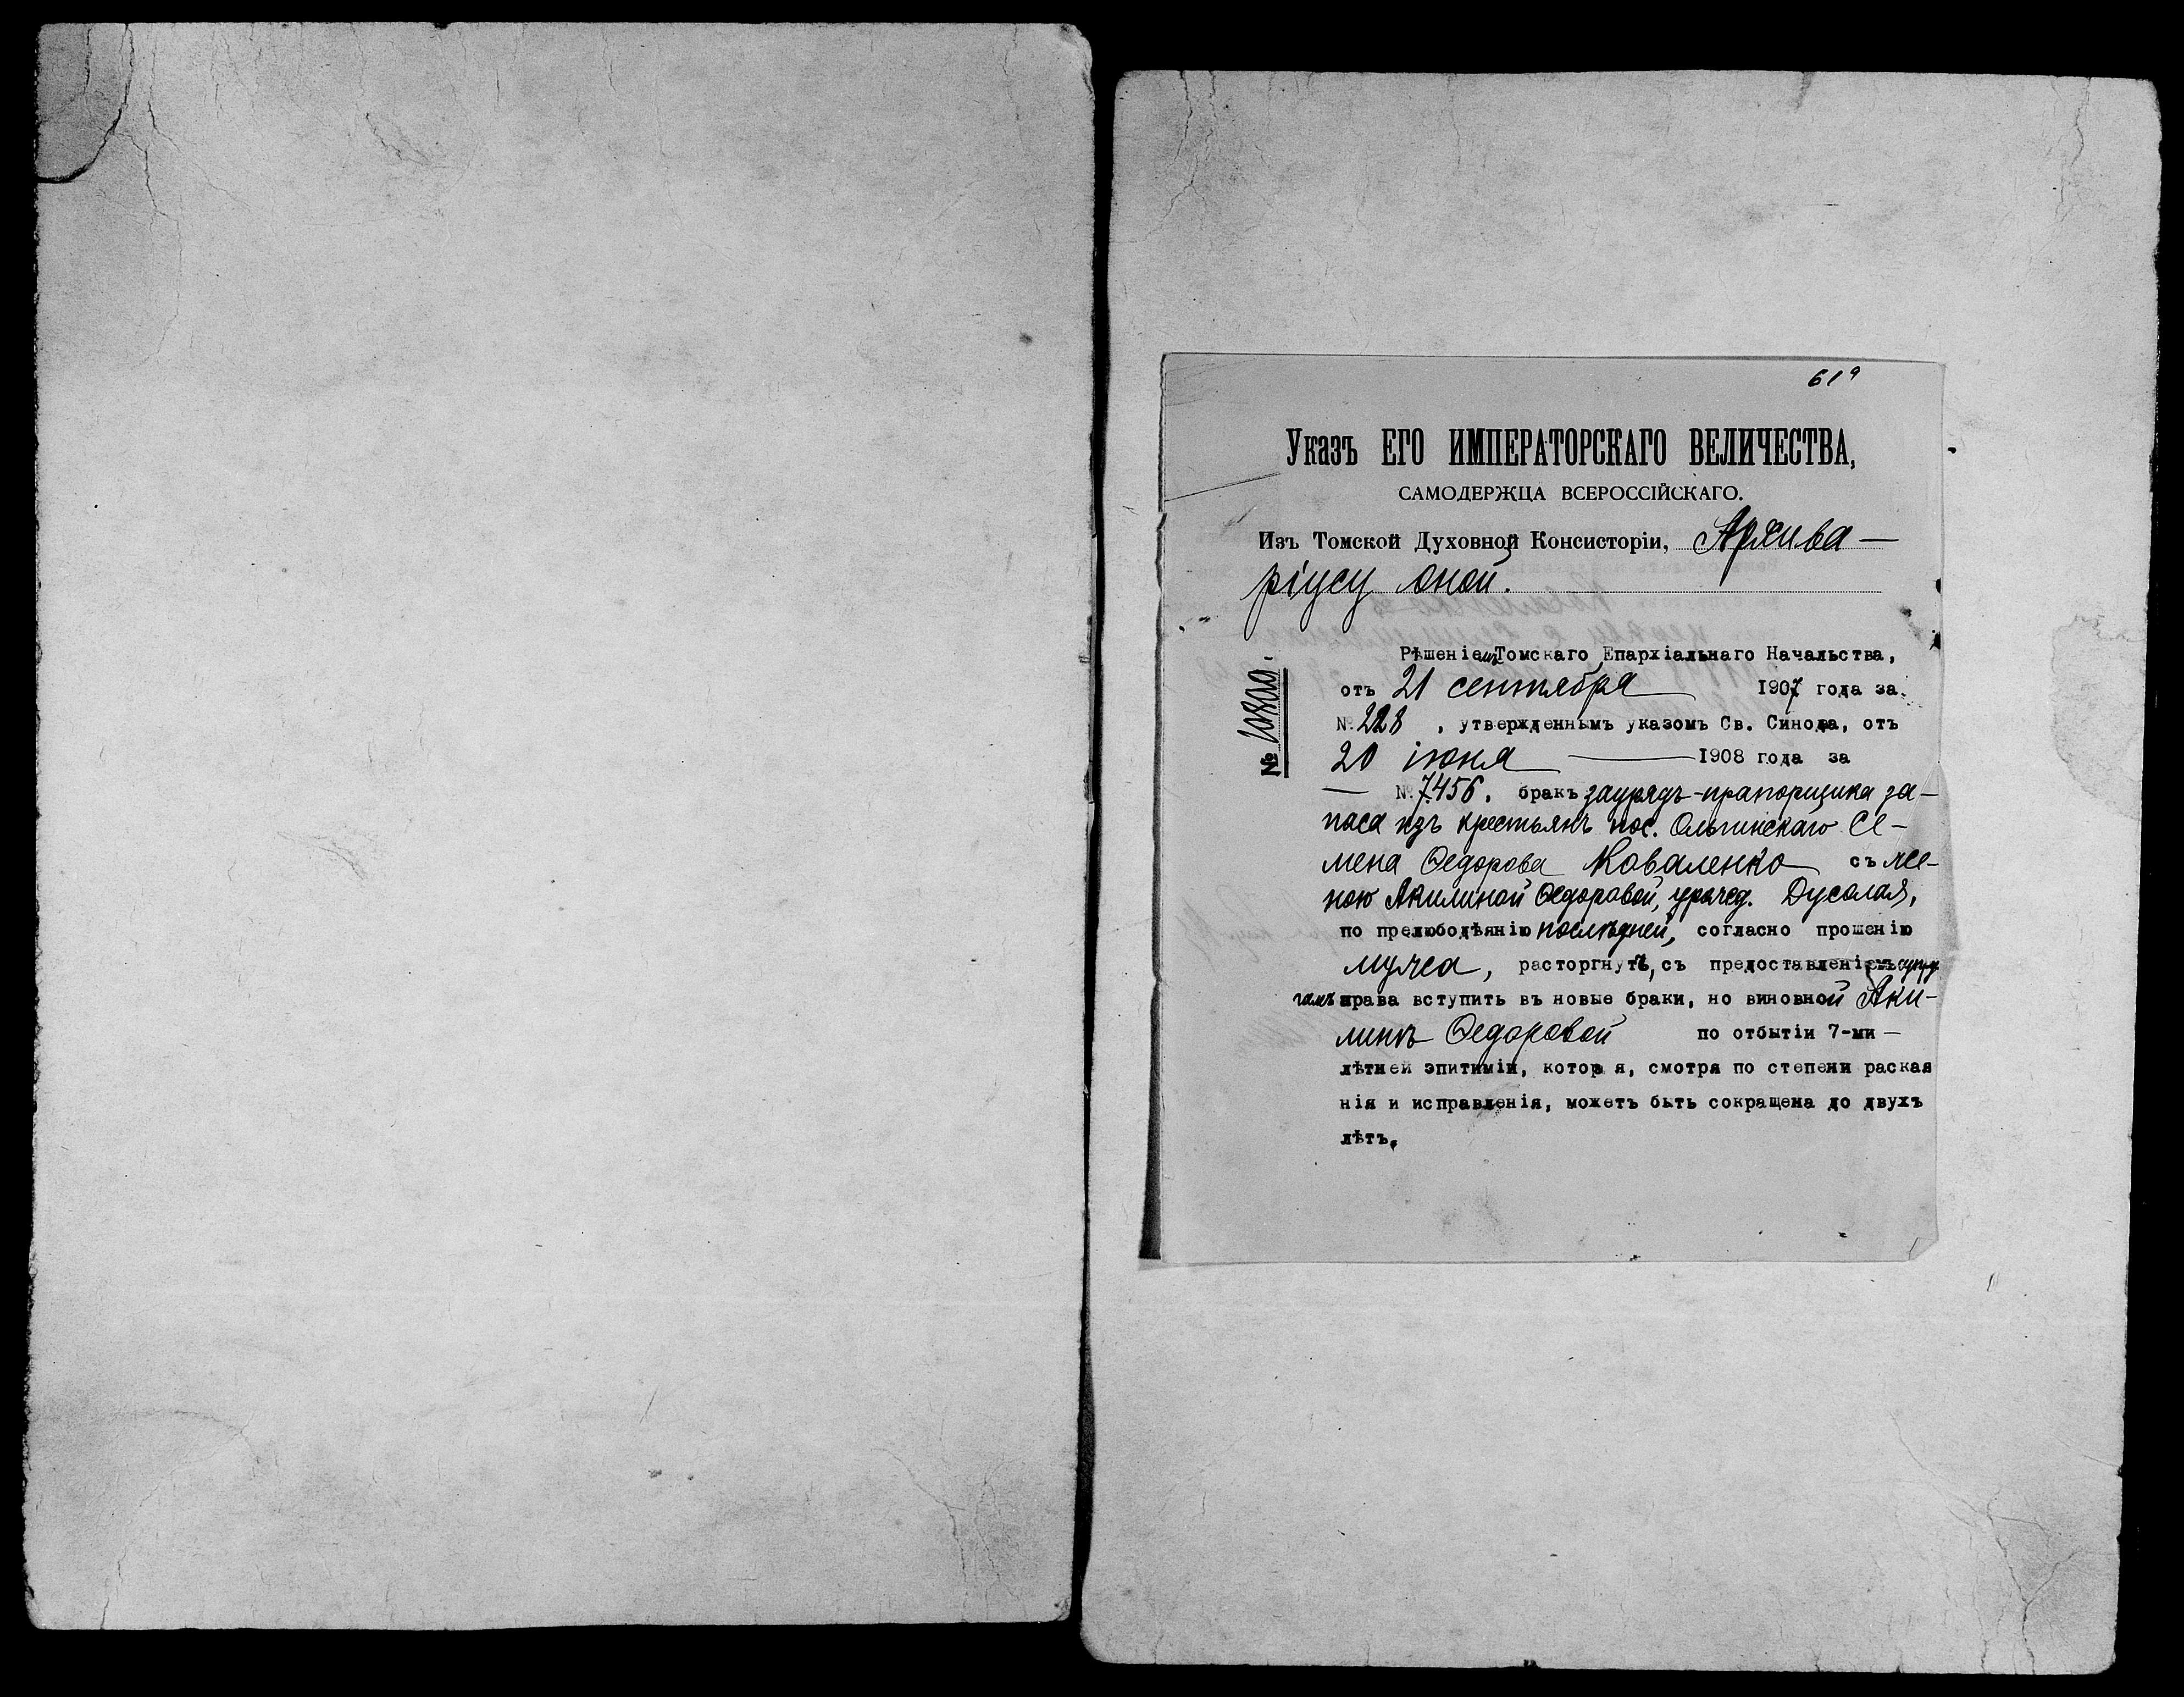 61а
Указъ ЕГО ИМПЕРАТОРСКАГО ВЕЛИЧЕСТВА,
САМОДЕРЖЦА ВСЕРОССІЙСКАГО.
Изъ Томской Духовной Консисторіи, Архива-
ріусу оной.
№
Рѣшеніемъ Томскаго Епархіальнаго Начальства,
отъ 21 сентября 1907 года за
№ 228, утвержденнымъ указомъ Св. Синода, отъ
20 іюня 1908 года за
— № 7456, бракъ зауряд-прапорщика за-
паса изъ крестьянъ пос. Ольгинскаго Се-
мена Ѳедорова Коваленко съ же-
ною Акилиной Ѳедоровой, урожд.
по прелюбодѣянію послѣдней, согласно прошенію
мужа, расторгнутъ, съ предоставленіемъ супру-
гамъ права вступить въ новые браки, но виновной Аки-
линѣ Ѳедоровой по отбытіи 7-ми —
лѣтней эпитиміи, котор я, смотря по степени раская
нія и исправленія, можетъ быть сокращена до двухъ
лѣтъ.